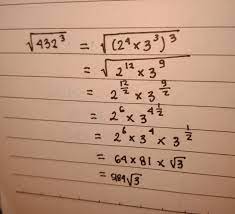 √432³ = √(2⁴ × 3³)³
= √2¹² × 3⁹
= 2^(12/2) × 3^(9/2)
= 2⁶ × 3^(4 1/2)
= 2⁶ × 3⁴ × 3^(1/2)
= 64 × 81 × √3
= 5184√3